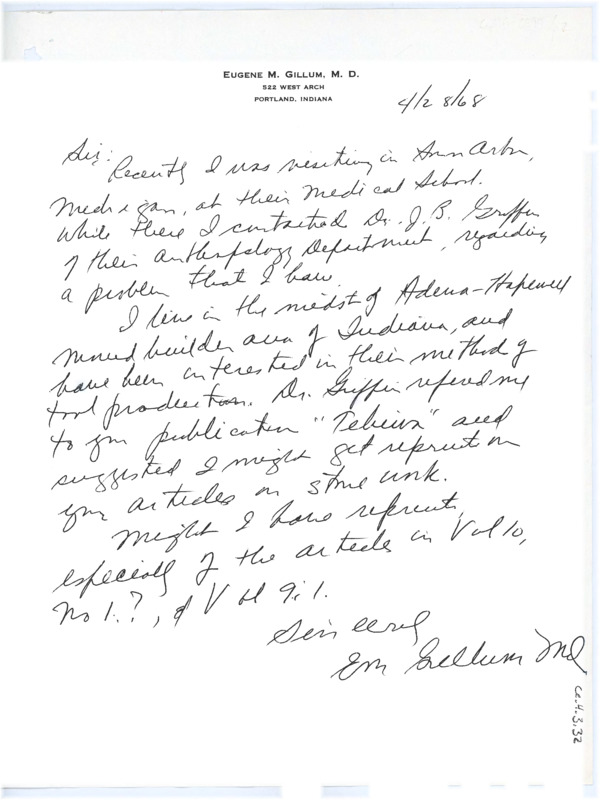 EUGENE M. GILLUM, M. D.
522 WEST ARCH
PORTLAND, INDIANA
4/28/68
Sir:
Recently I was visiting in Ann Arbor,
Medrigan, at their Medical School.
While there I contacted Dr. J. B. Griffin
of their Anthropology Department, regarding
a problem that I have.
I live in the midst of Adena-Hopewell
Mound builder area of Indiana, and
have been interested in their method of
tool production. Dr. Griffin refered me
to your publication "Tebiwa" and
suggested I might get reprint on
your articles on stone work.
Might I have reprints,
especially of the articles in Vol 10,
No 1.?, & Vol 9:1.
Sincerely
Em Gillum MD
Ce.4.3.32